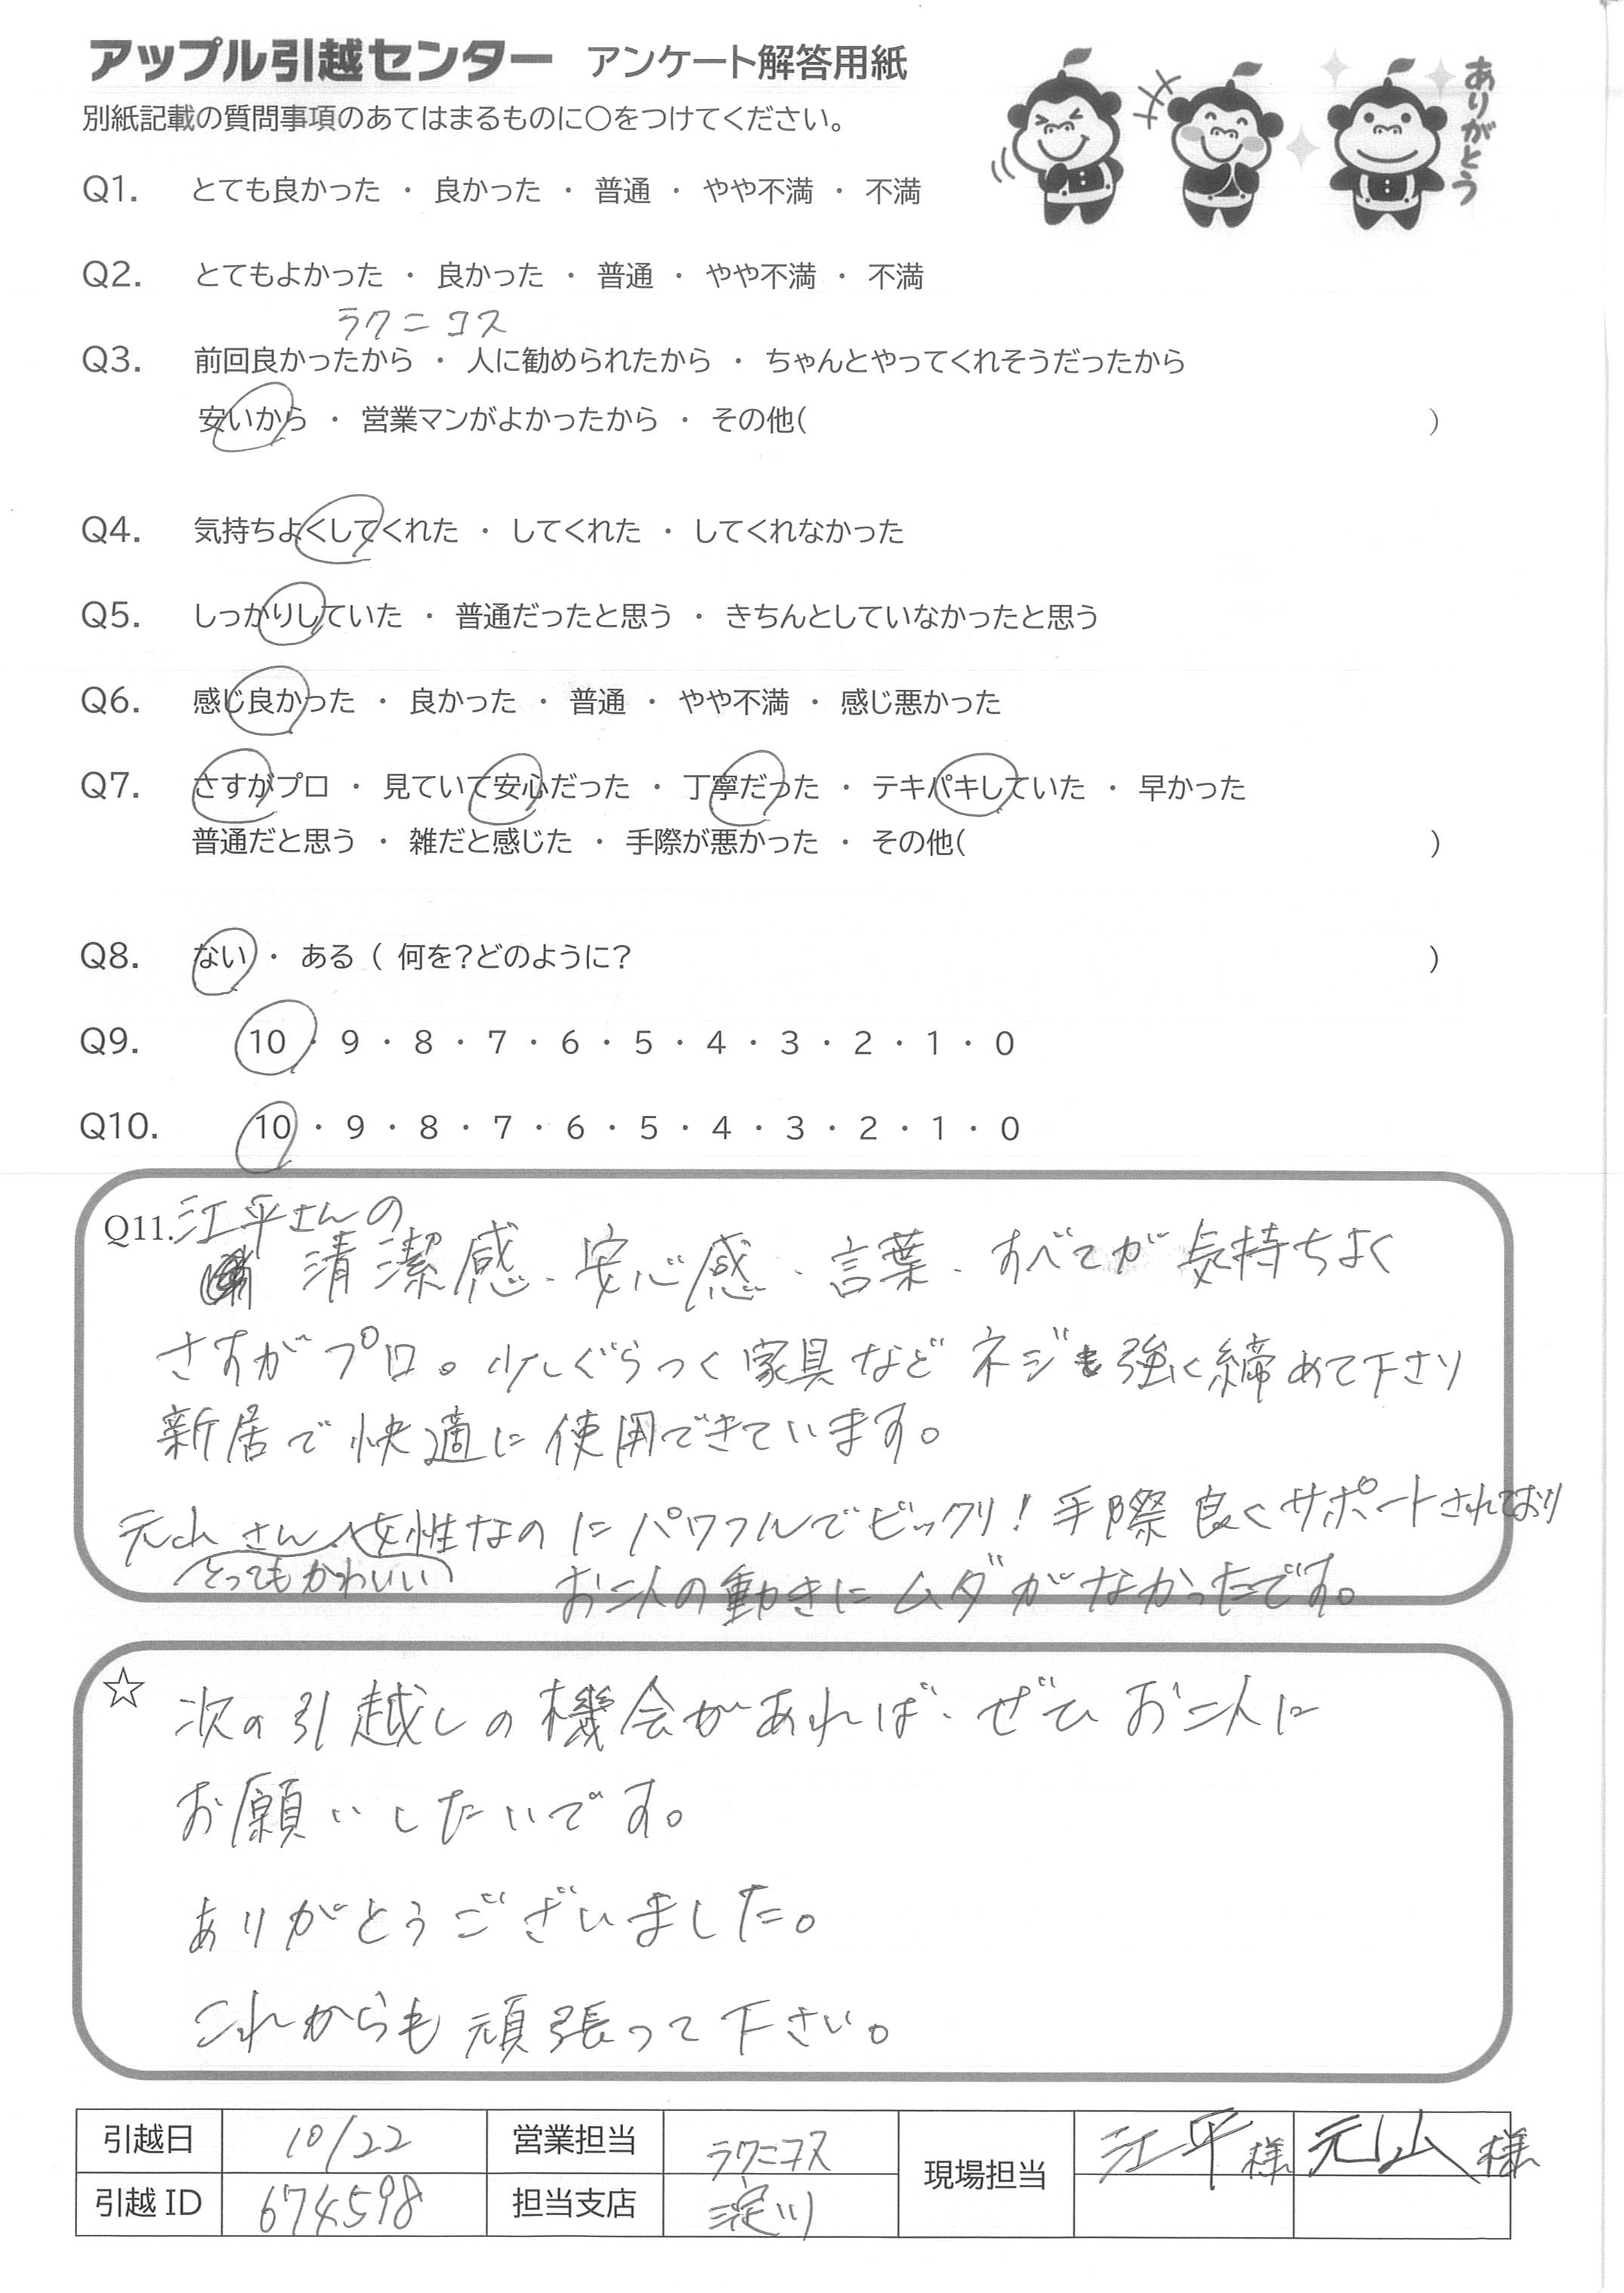 アップル引越センター アンケート解答用紙
ありがとう
別紙記載の質問事項のあてはまるものに〇をつけてください。
Q1. とても良かった ・ 良かった ・ 普通 ・ やや不満 ・ 不満
Q2. とてもよかった ・ 良かった ・ 普通 ・ やや不満 ・ 不満
ラクニコス
Q3. 前回良かったから ・ 人に勧められたから ・ ちゃんとやってくれそうだったから
安いから ・ 営業マンがよかったから ・ その他( )
Q4. 気持ちよくしてくれた ・ してくれた ・ してくれなかった
Q5. しっかりしていた ・ 普通だったと思う ・ きちんとしていなかったと思う
Q6. 感じ良かった ・ 良かった ・ 普通 ・ やや不満 ・ 感じ悪かった
Q7. さすがプロ ・ 見ていて安心だった ・ 丁寧だった ・ テキパキしていた ・ 早かった
普通だと思う ・ 雑だと感じた ・ 手際が悪かった ・ その他( )
Q8. ない ・ ある ( 何を?どのように? )
Q9. 10 ・ 9 ・ 8 ・ 7 ・ 6 ・ 5 ・ 4 ・ 3 ・ 2 ・ 1 ・ 0
Q10. 10 ・ 9 ・ 8 ・ 7 ・ 6 ・ 5 ・ 4 ・ 3 ・ 2 ・ 1 ・ 0
Q11. 江平さんの
清潔感、安心感、言葉、すべてが気持ちよく
さすがプロ。少しぐらつく家具などネジも強く締めて下さり
新居で快適に使用できています。
元山さん女性なのにパワフルでビックリ!手際良くサポートされており
とってもかわいい
お二人の動きにムダがなかったです。
☆ 次の引越しの機会があれば、ぜひお二人に
お願いしたいです。
ありがとうございました。
これからも頑張って下さい。
引越日 10/22 営業担当 ラクニコス 現場担当 江平様 元山様
引越ID 674598 担当支店 淀川